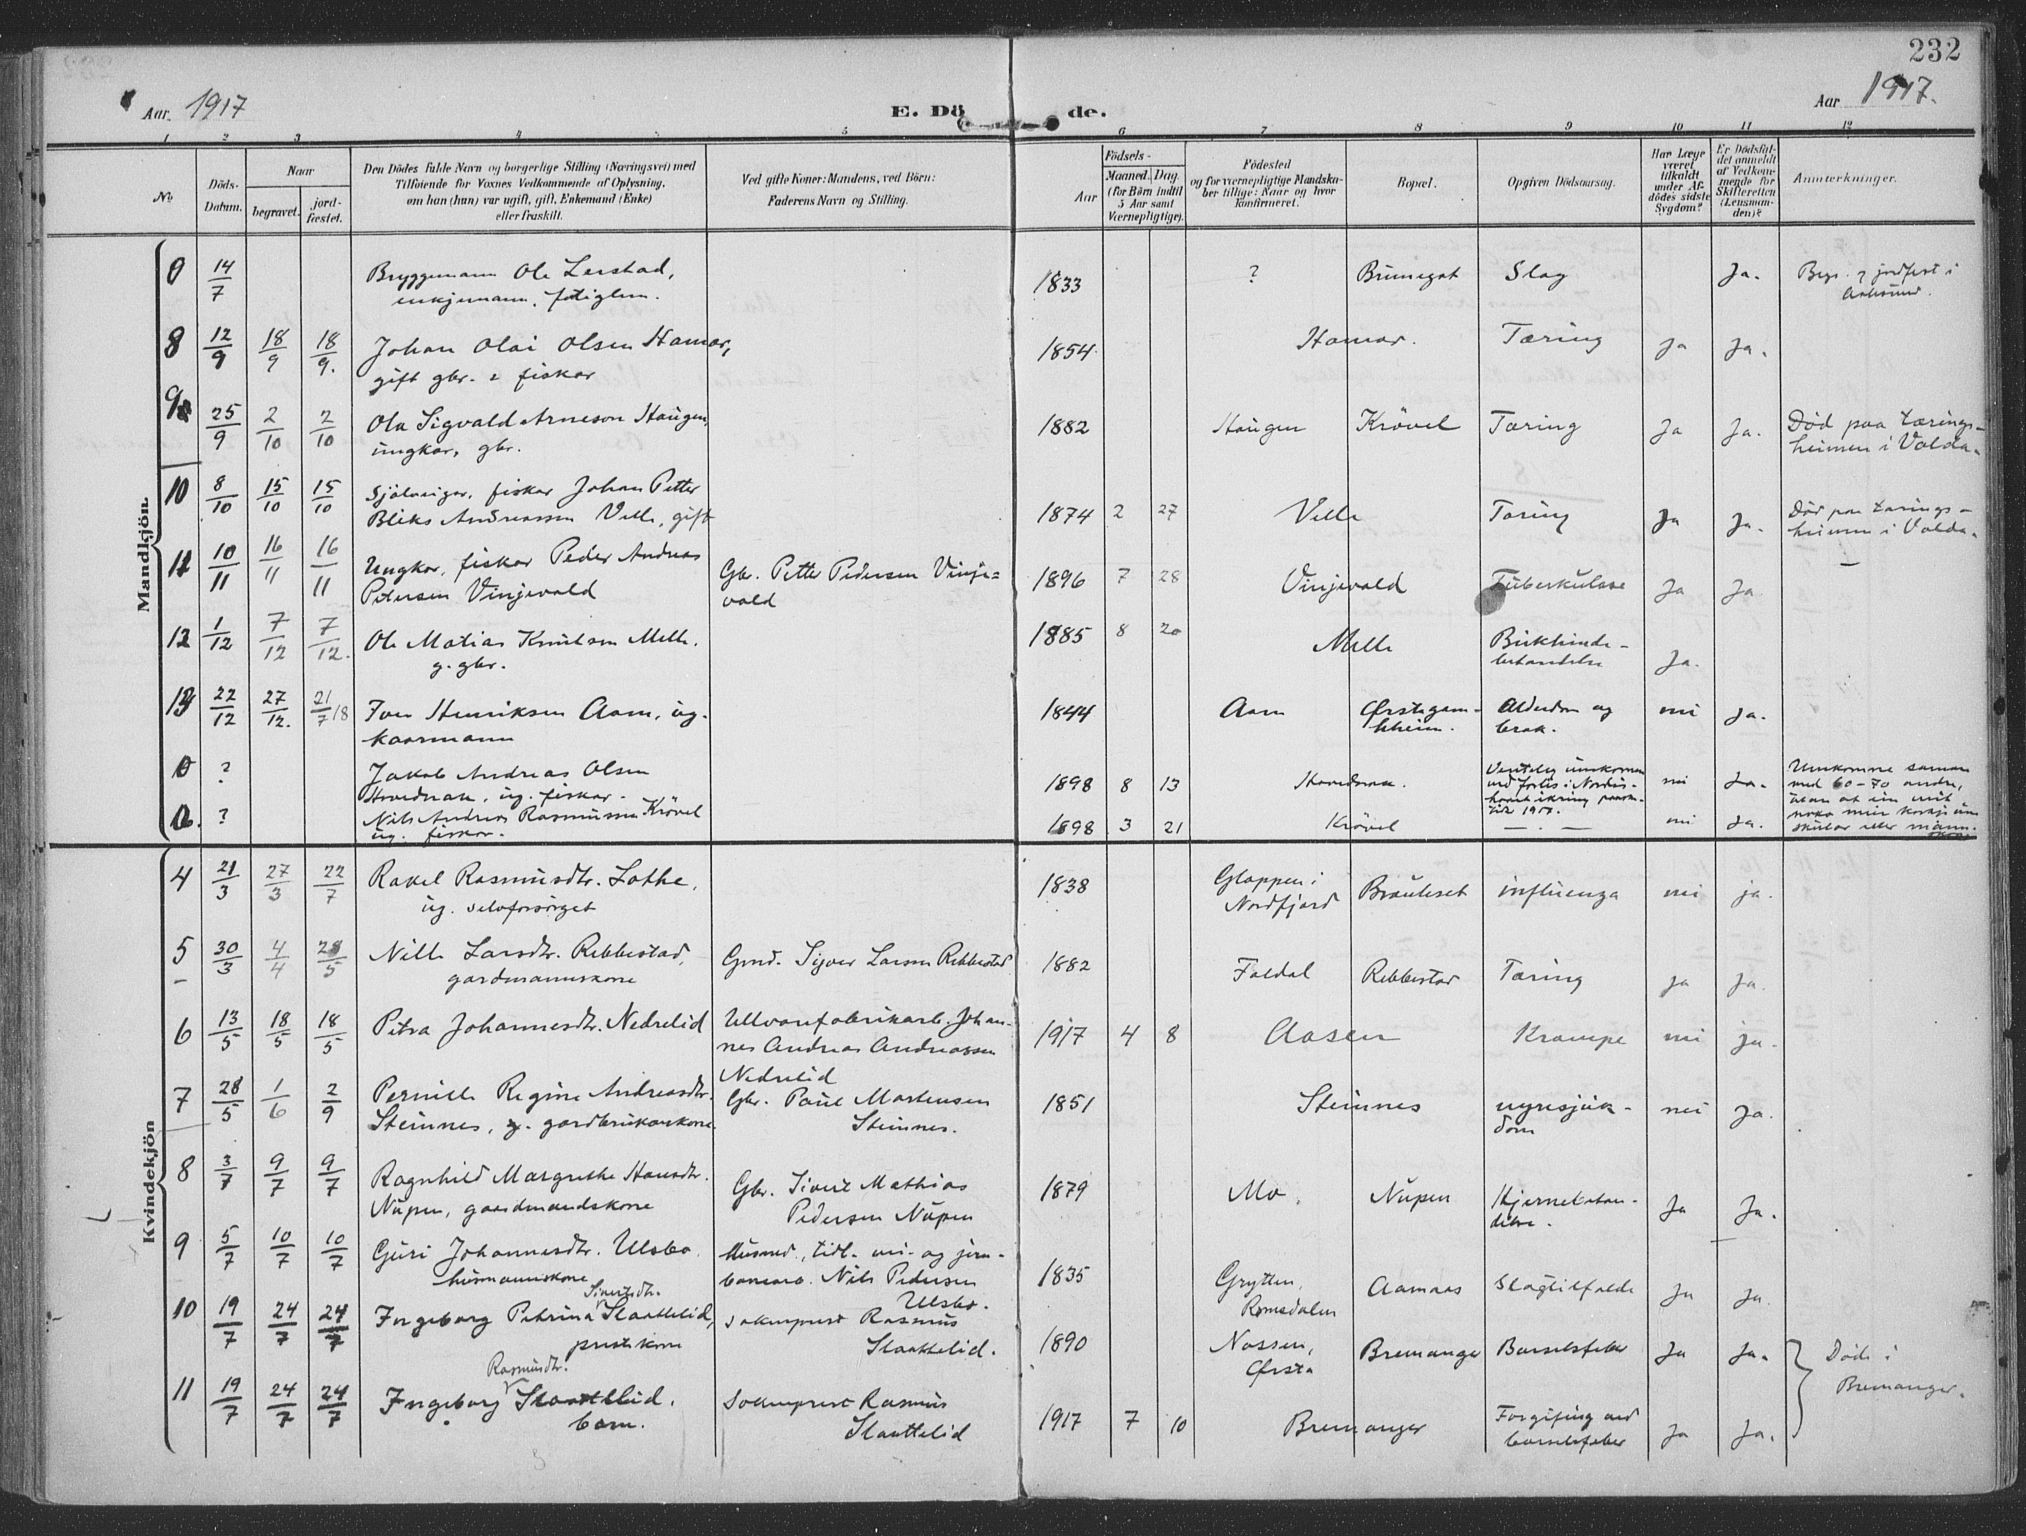 232
Aar. 1917
E. Dö de.
Aar 1917.
1 2 3 4 5 6 7 8 9 10 11 12
No
Döds-
Datum.
Naar
begravet.
jord-
fæstet.
Den Dödes fulde Navn og borgerlige Stilling (Næringsvei) med
Tilføiende for Voxnes Vedkommende af Oplysning,
om han (hun) var ugift, gift, Enkemand (Enke)
eller fraskilt.
Ved gifte Koner: Mandens, ved Börn:
Faderens Navn og Stilling.
Födsels-
Aar
Maaned. Dag.
(for Börn indtil
5 Aar samt
Værnepligtige).
Födested
og for værnepligtige Mandska-
ber tillige: Naar og hvor
konfirmeret.
Bopæl.
Opgiven Dödsaarsag.
Har Læge
været
tilkaldt
under Af-
dödes sidste
Sygdom?
Er Dödsfal-
det anmeldt
af Vedkom-
mende for
Skifteretten
(Lensman-
den)?
Anmærkninger.
Mandkjön.
0 14/7 Bryggemann Ole Lerstad, 1833 ? Brunegot Slag Ja. Begr. og jordfest i
enkjemann, fatiglem.
8 12/9 18/9 18/9. Johan Olai Olsen Hamar, 1854 Hamar. Tæring Ja Ja.
gift gbr. & fiskar
9 25/9 2/10 2/10 Ola Sigvald Arneson Haugen, 1882 Haugen Krövel Tæring Ja Ja. Död paa tærings-
ungkar, gbr. heimen i Volda.
10 8/10 15/10 15/10 Sjölveigar, fiskar Johan Petter
Bliks Andreassen Velle, gift 1874 2 27 Velle Tæring Ja Ja. Död paa tærings-
heimen i Volda.
11 10/11 16/11 16/11 Ungkar, fiskar Peder Andreas Gbr. Petter Pedersen Vinje- 1896 7 28 Vinjevold Tuberkulose Ja Ja
Petersen Vinjevold vold
12 1/12 7/12 7/12. Ole Matias Knutsen Melle. 1885 8 20 Melle Bukhinde-
g. gbr. betændelse Ja.
13 22/12 27/12. 21/7 18 Iver Henriksen Aam, ug. 1844 Aam Ørstagam- Alderdom og nei Ja.
kaarmann leheim. brok.
0 ? Jakob Andreas Olsen 1898 8 13 Hovdenak. Venteleg umkomen nei Ja. Umkomne saman
Hovdenak, ug. fiskar. med 60-70 andre,
0. ? Nils Andreas Rasmussen Krövel 1898 3 21 Krövel 1917. nei Ja.
ug. fiskar.
Kvindekjön
4 21/3 27/3 22/7 Rakel Rasmusdtr. Lothe, 1838 Gloppen i Brauteset influenza nei ja.
ug. selvforsörget Nordfjord
5 30/3 4/4 28/5 Nille Larsdtr. Rebbestad, Gmd. Siver Larsen Rebbestad 1882 Foldal Rebbestad Tæring ja Ja.
gardmannskone
6 13/5 18/5 18/5 Petra Johannesdtr. Nedrelid Ullvarefabrikarb. Johan- 1917 4 8 Aasen Krampe nei ja.
nes Andreas Andreassen
Nedrelid
7 28/5 1/6 2/9 Pernille Regine Andreasdtr. Gbr. Paul Martensen 1851 Steinnes nyresjuk- nei Ja.
Steinnes, g. gardbrukarkone Steinnes. dom
8 3/7 9/7 9/7 Ragnhild Margrethe Hansdtr. Gbr. Sivert Mathias 1879 Mo. Nupen Hjernebetæn- Ja Ja.
Nupen, gaardmandskone Pedersen Nupen delse.
9 5/7 10/7 10/7 Guri Johannesdtr. Ulsbo. Husmd., tidl. mi- og jern- 1835 Grytten, Aamaas Slagtilfælde Ja Ja.
husmannskone banearb. Nils Pedersen Romsdalen
Ulsbo.
10 19/7 24/7 24/7 Ingeborg Petrina Sivertsdtr. Slaattelid, Sokneprest Rasmus 1890 Nossen, Bremanger Barselfeber Ja Ja.
prestekone Slaattelid. Ørsta
Döde i
Bremanger.
11 19/7 24/7 24/7 Ingeborg Rasmusdtr. Slaattelid. Sokneprest Rasmus 1917 7 10 Bremanger Forgifting ved Ja Ja.
barn. Slaattelid barselfeber